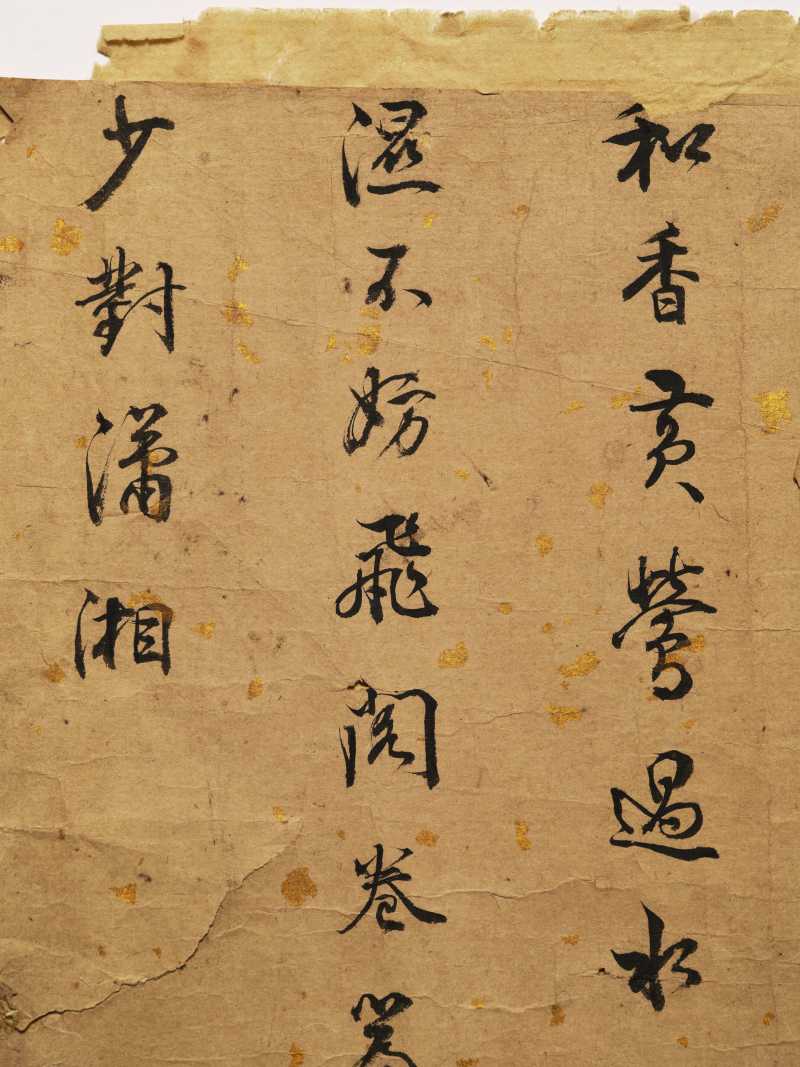 和香黃鶯過水
濕不妨飛閣卷
少對瀟湘